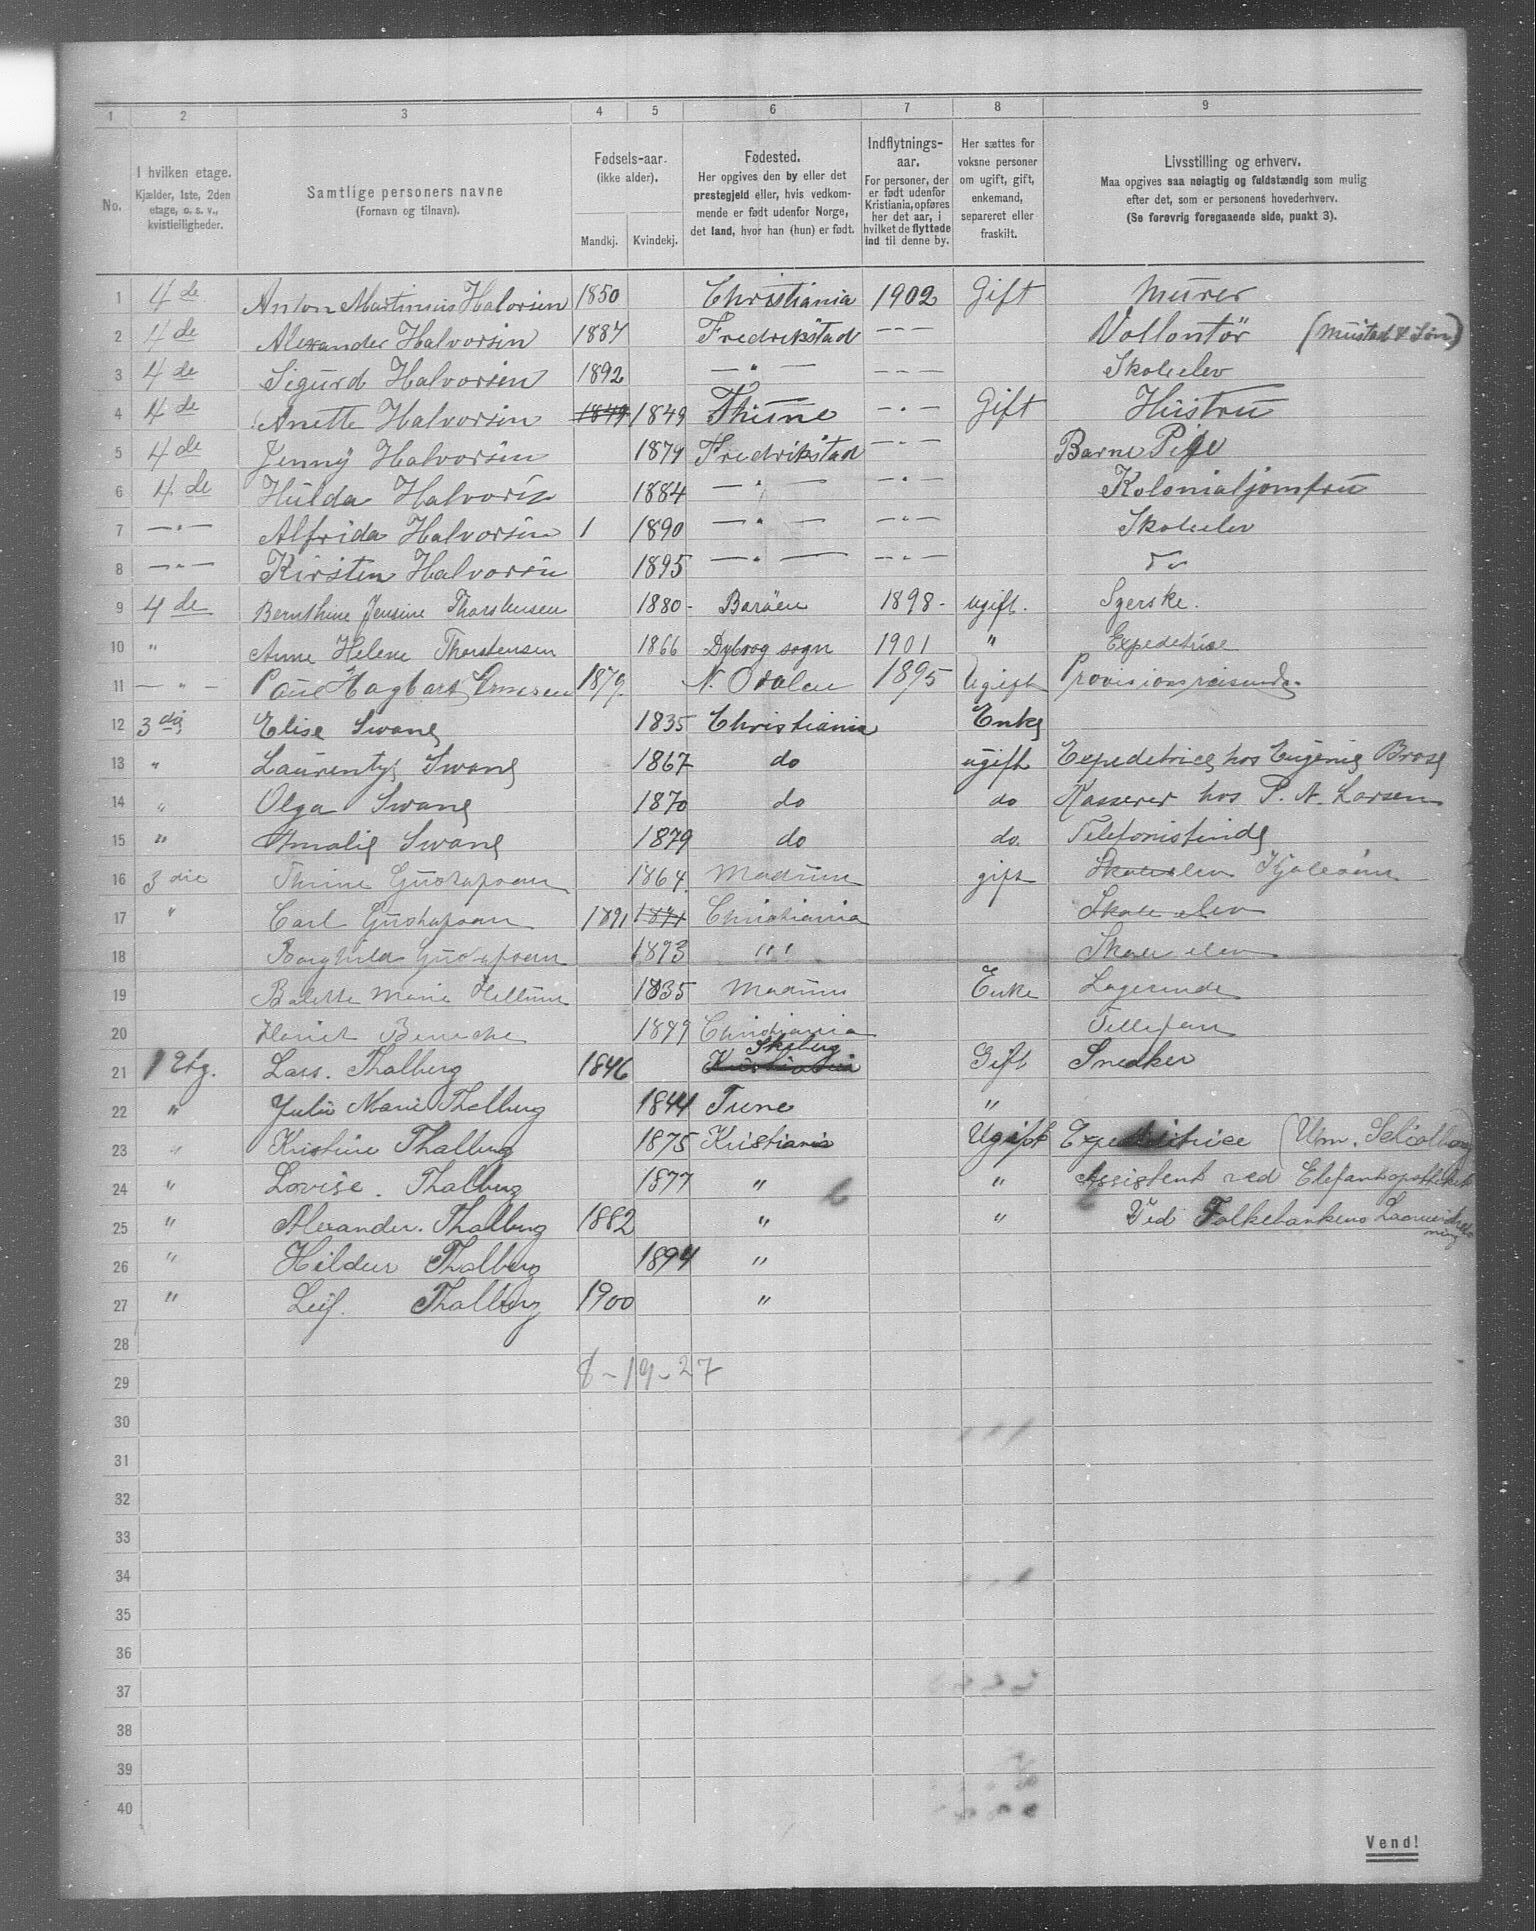 1 2 3 4 5 6 7 8 9
No. I hvilken etage. Kjælder, 1ste, 2den etage, o. s. v., kvistleiligheder. Samtlige personers navne (Fornavn og tilnavn). Fødsels-aar. (ikke alder). Mandkj. Kvindekj. Fødested. Her opgives den by eller det prestegjeld eller, hvis vedkommende er født udenfor Norge, det land, hvor han (hun) er født. Indflytnings-aar. For personer, der er født udenfor Kristiania, opføres her det aar, i hvilket de flyttede ind til denne by. Her sættes for voksne personer om ugift, gift, enkemand, separeret eller fraskilt. Livsstilling og erhverv. Maa opgives saa nøiagtig og fuldstændig som mulig efter det, som er personens hovederhverv. (Se forøvrig foregaaende side, punkt 3).
1 4de Anton Martinius Halvorsen 1850 Christiania 1902 Gift Murer
2 4de Alexander Halvorsen 1887 Fredrikstad — — — Vollontör (Mustad & Søn)
3 4de Sigurd Halvorsen 1892 — " — — " — Skoleelev
4 4de Anette Halvorsen 1849 1849 Thune — " — Gift Hustru
5 4de Jenny Halvorsen 1879 Fredrikstad — " — Barne Pige
6 4de Hulda Halvorsen 1884 — " — — " — Kolonialjomfru
7 — " — Alfrida Halvorsen 1 1890 — " — — " — Skoleelev
8 — " — Kirsten Halvorsen 1895 — " — — " —
9 4de Bernthine Jensine Thorstensen 1880 - Barøen 1898 - ugift. Syerske.
10 " Anne Helene Thorstensen 1866 Dybvåg sogn 1901 " Expeditrise
11 — " — Paul Hagbart 1879. N. Odalen 1895 Ugift Provisionsreisende.
12 3die Elise Swane 1835 Christiania Enke
13 " Laurentze Swane 1867 do ugift Expeditrice hos Eugenie Brose
14 " Olga Swane 1870 do do Kasserer hos P. A. Larsen
15 " Amalie Swane 1879 do do. Telefonistinde
16 3die Thrine Gustafsen 1864. Modum gift Skoleelev
17 " Carl Gustafsen 1891 Christiania Skole elev
18 Borghild Gustafsen 1893 " " Skole elev
19 Bolette Marie Hellum 1835 Modum Enke Logerende
20 1889 Christiania
21 1 Etg. Lars. Thalberg 1846 Kristiania Gift Snedker
22 " Julie Marie Thalberg 1844 Tune "
23 " Kristine Thalberg 1875 Kristiania Ugift Expeditrice
24 " Lovise. Thalberg 1877 " " Assistent ved Elefantapotheket
25 " Alexander. Thalberg 1882 " " Ved Folkebankens
26 " Hildur Thalberg 1894 "
27 " Leif. Thalberg 1900 "
28
8 - 19 - 27
29
30
31
32
33
34
35
36
37
38
39
40
Vend!